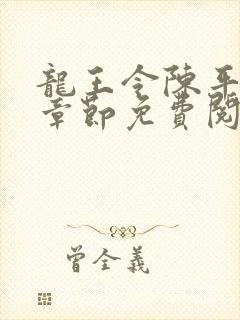 龍王令陳平
章節免費閱
曾全義